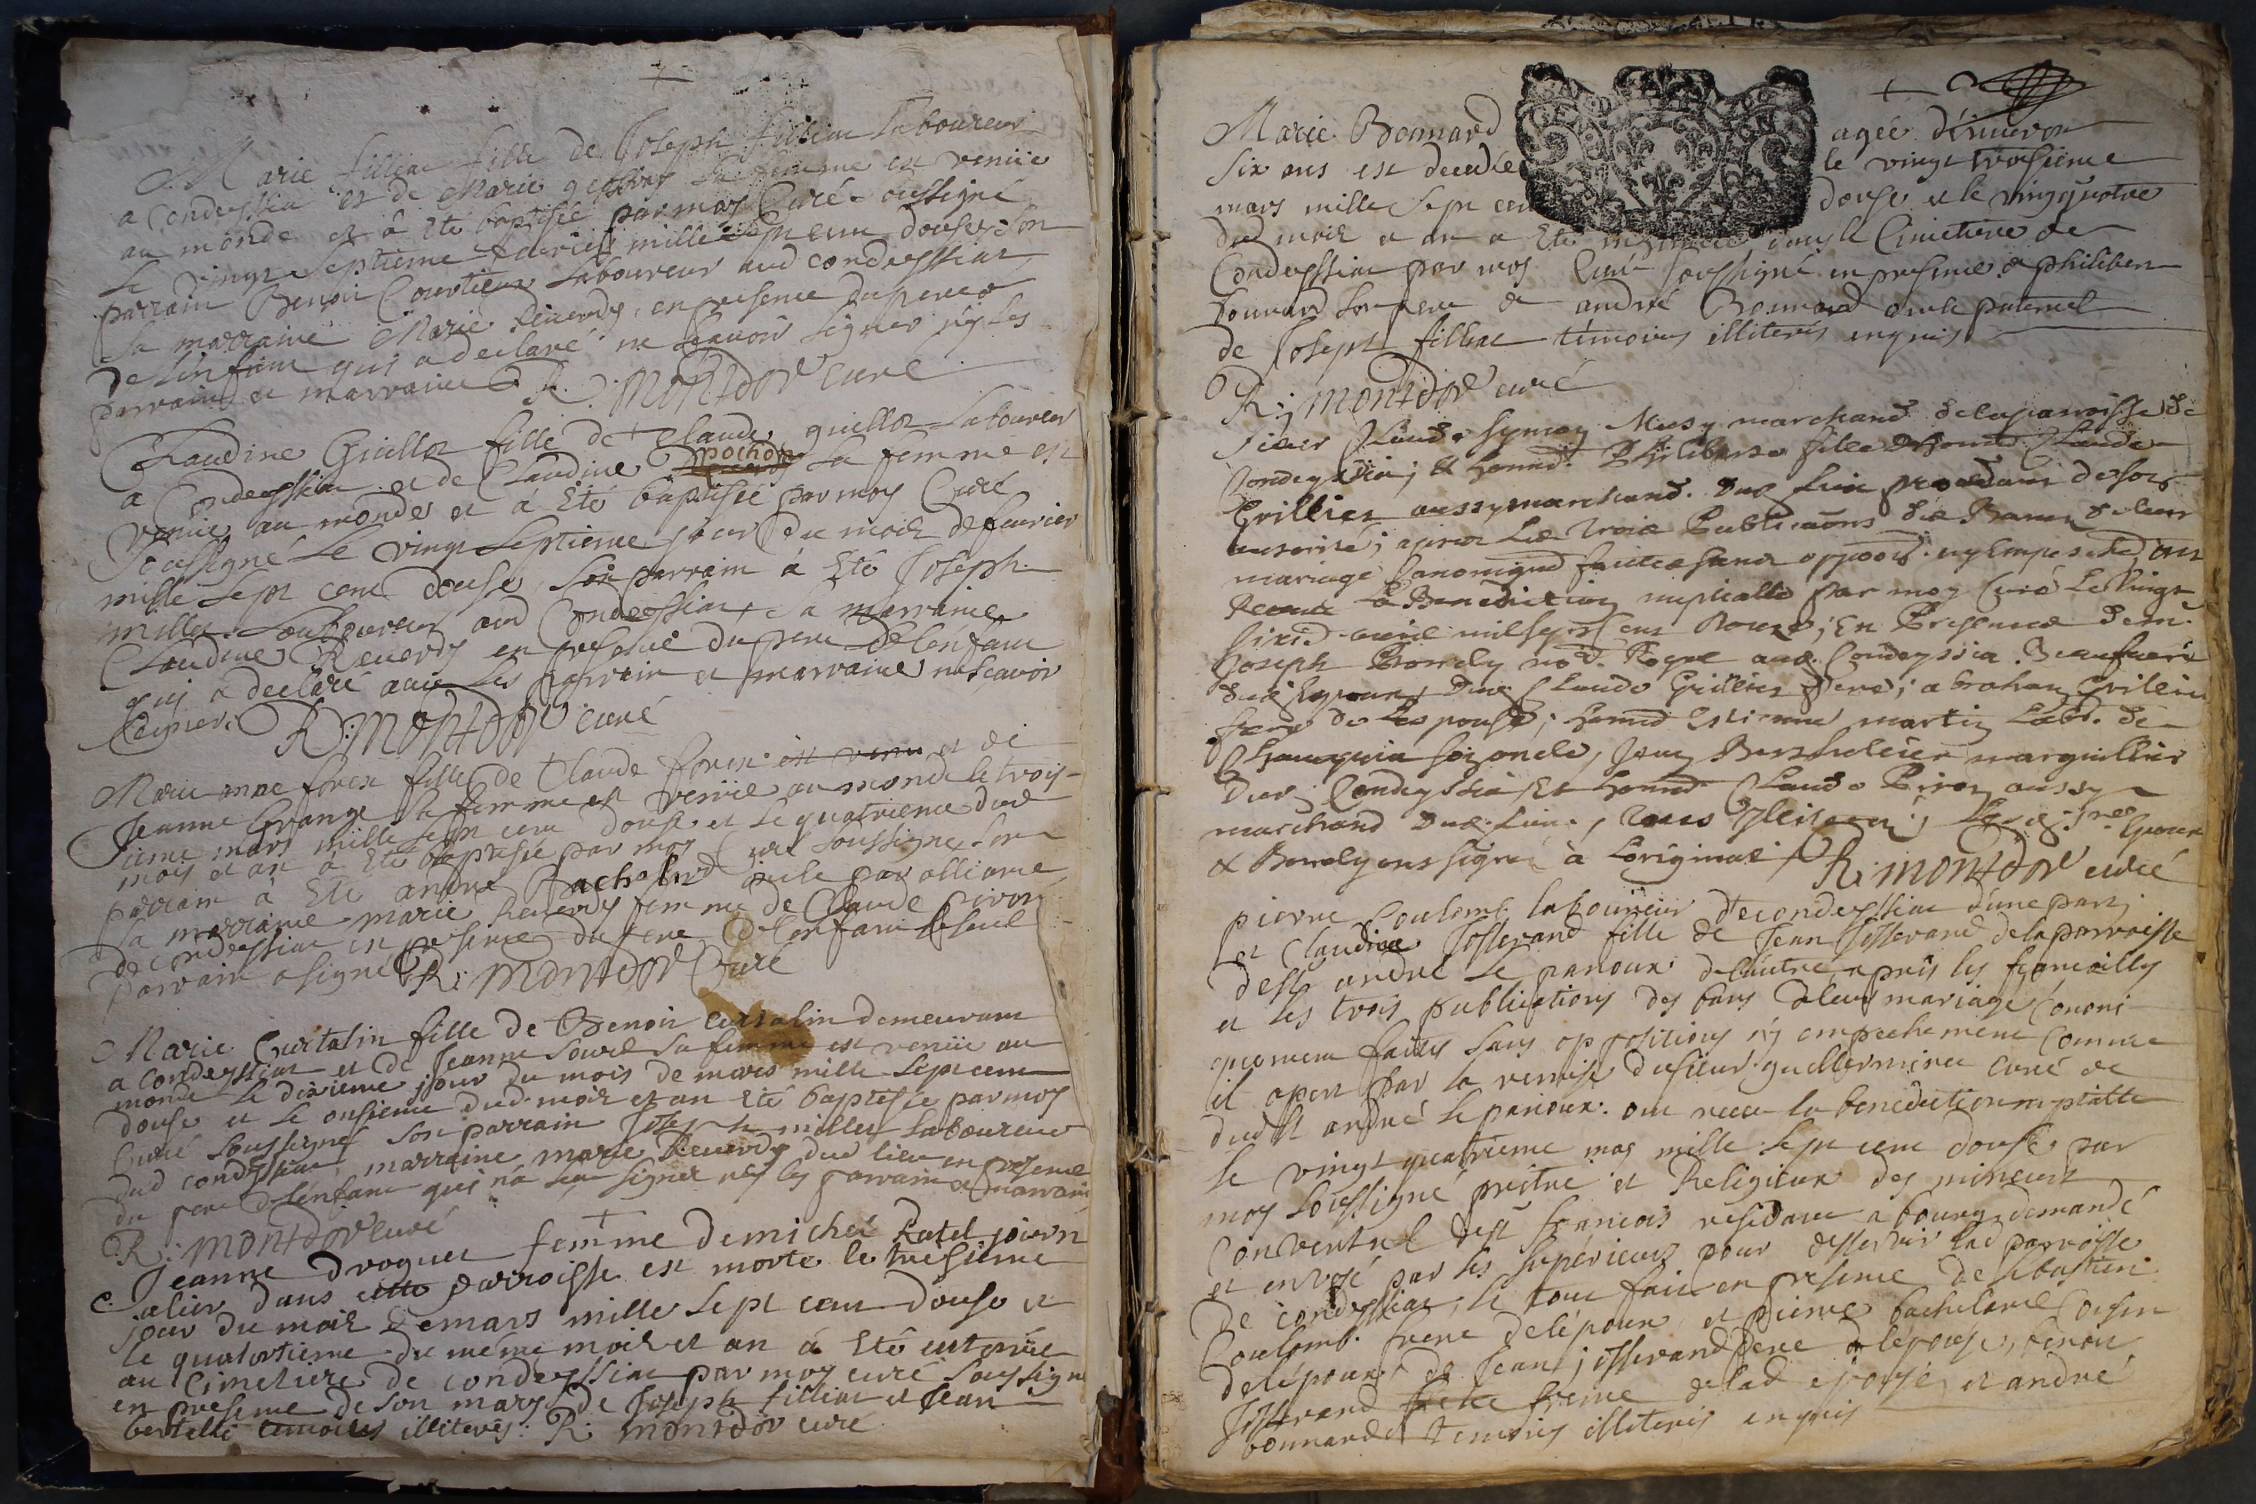 Marie filliat fille de Joseph filliat laboureur
a Condeyssiat et de Marie sa femme est venüe
au monde et à été baptisée par moy Curé soussigné
le vingt Septieme feurier mille sept cent douse, son
parrain Benoit Courtieux laboureur aud condeyssiat
sa marraine Marie Reverdy, en presence du pere
de l'enfant qui a declaré ne scauoir signer ny les
parrain et marraine. R: MONTDOR curé
Claudine Guillot fille de Claude guillot laboureur
a Condeyssiat et de Claudine pochon sa femme est
venüe au monde et à été baptisée par moy Curé
soussigné le vingt septieme jour du mois de feurier
mille sept cent douse, son parrain à été Joseph
millet laboureur aud Condeyssiat, sa marraine
Claudine Reverdy en presence du pere de l'enfant
qui a declaré auec les parrain et marraine ne scauoir
signer. R: MONTDOR curé
Marie anne forest fille de Claude forest est venu et de
Jeanne Grange sa femme est venüe au monde le trois-
ieme mars mille sept cent douse et le quatrieme dud
mois et an à été baptisée par moy Curé soussigné, son
parrain à été andré Bachelard oncle par alliance,
sa marraine marie Reverdy femme de Claude Piron
de condeyssiat en presence du pere de l'enfant le seul
parrain a signé R: MONTDOR Curé
Marie Curtalin fille de Benoit curtalin demeurant
a condeyssiat et de Jeanne sa femme est venüe au
monde le dixieme jour du mois de mars mille sept cent
douse et le onsieme dud mois et an été baptisée par moy
Curé soussigné son parrain Joseph millet laboureur
dud condeyssiat, marraine marie Reverdy dud lieu en presence
du pere de l'enfant qui n'a sçu signer ny les parrain et marraine
R: MONTDOR curé
Jeanne droguet femme de michel Ratel journ
alier dans cette parroisse est morte le tresieme
jour du mois de mars mille sept cent douse et
le quatortieme du même mois et an à été enterrée
au Cimetiere de condeyssiat par moy curé soussigné
en presence de son mary de Joseph filliat et Jean
bertelli temoins illiterés: R: MONTDOR curé
Marie Bonnard agée d'enuiron
six ans est decedée le vingt troisieme
mars mille sept cent douse et le vingtquatre
du mois et an a été inhumée dans le Cimetiere de
Condeyssiat par moy Curé soussigné en presence de philibert
bonnard son pere et andré Bonnard oncle paternel
de Joseph filliat témoins illiterés enquis
R: MONTDOR curé
Sieur Claude Musy marchand de la parroisse de
Condeyssia; & honn. Philiberte fille d'honn. Claude
Grillier aussy marchand
authorité; apres les trois Publications des Bans de leur
mariage Canoniqu faittes sans opposit. ny Empeschem. ont
Receu la Benediction nuptialle par moy Curé le Vingt
sixie auril mil sept Cent Douze; En Presence de m.
Joseph Brondy no. Royal aud. Condeyssia Beaufrere
Claude Grillier Pere; abraham Grillier
frere de Lespouse; honn. Estienne martin Lab. de
son oncle, Jean Berthelier marguillier
Condeyssia, Et honn. Claude Piron aussy
marchand
& Brondy ont signé à Loriginal R: MONTDOR curé
pierre Coulomb laboureur de condeyssiat d'une part
et Claudine Josserand fille de Jean Josserand de la parroisse
de st andré le panoux de l'autre, aprés les fiancailles
et les trois publications des bans de leur mariage Canoni
quement faittes sans oppositions ny empechement comme
il apert par la remise du sieur guillerminet curé de
dud st andré le panoux. ont receu la benediction nuptialle
le vingt quatrieme may mille sept cent douse. par
moy soussigné prêtre et Religieux des mineurs
Conventuel de st francois residant a bourg demandé
et enuoyé par les superieurs pour desservir lad parroisse
de condeyssiat, le tout fait en presence de sebastien
Coulomb frere de l'époux et pierre bachelard Cousin
de l'époux, de Jean josserand pere de l'epouse, benoit
Josserand frere de lad epouse, et andré
bonnard temoins illiterés enquis